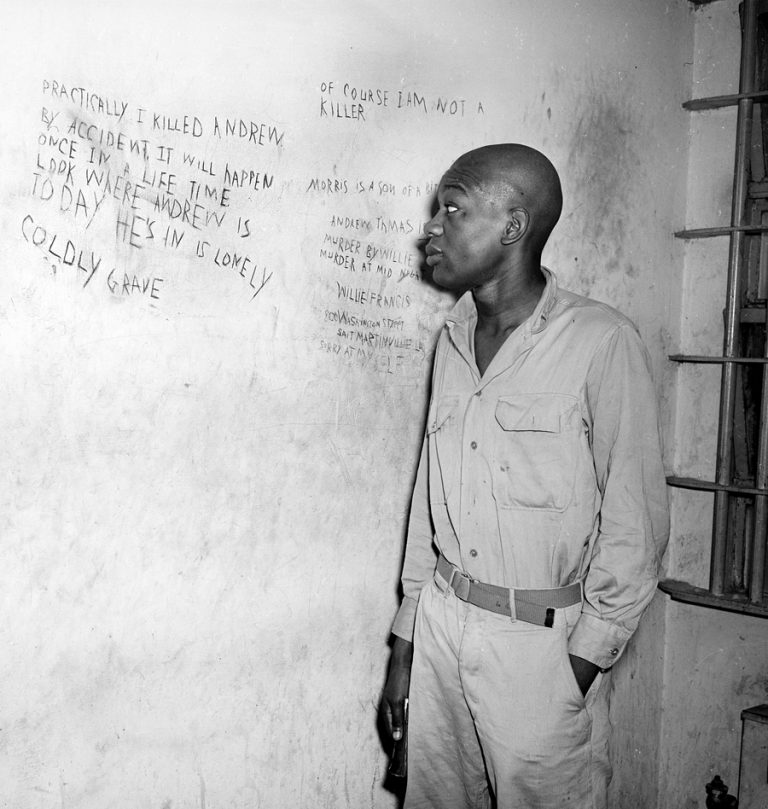 PRACTICALLY I KILLED ANDREW
BY ACCIDENT. IT WILL HAPPEN
ONCE IN A LIFE TIME
LOOK WHERE ANDREW IS
TODAY HE'S IN IS LONELY
COLDLY GRAVE
OF COURSE I AM NOT A
KILLER
MORRIS IS A SON OF A
ANDREW TAMAS
MURDER BY WILLIE
MURDER AT MID
WILLIE FRANCIS
WASHINGTON STREET
SAIT MARTINVILLE
SORRY AT MYSELF